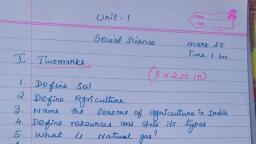 Unit - 1
Social Science
mark. 25
Time 1 hr.
I Twomarks
(5 x 2 = 10)
1. Define Soil
2. Define Agriculture
3. Name the Seasons of agriculture in India
4. Define resources and state its types
5. What is Natural gas?